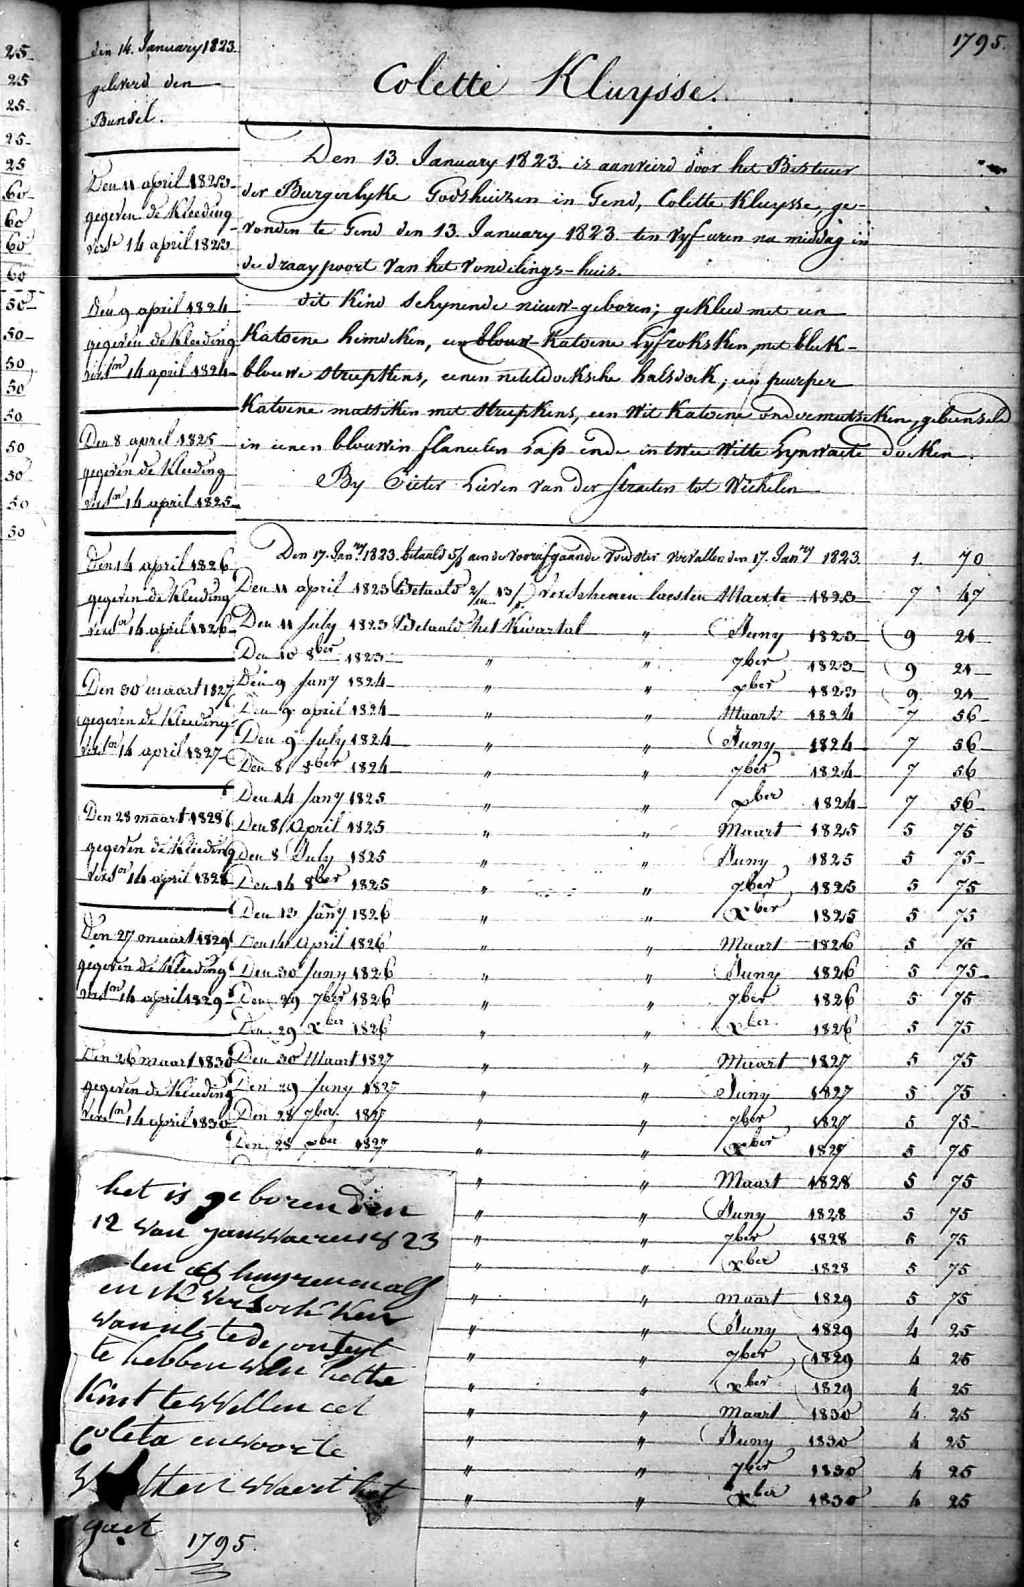 25
25
25
25
25
60
60
60
60
50
50
50
50
50
50
50
50
50
den 14. January 1823.
geleverd den
Bunsel.
Den 11 april 1823
gegeven de Kleeding
verst 14 april 1823
Den 9 april 1824
gegeven de Kleeding
verstn 14 april 1824
Den 8 april 1825
gegeven de Kleeding
verstn 14 april 1825
Den 14 april 1826
gegeven de Kleeding
verstn 14 april 1826
Den 30 maart 1827
gegeven de Kleeding
verstn 14 april 1827
Den 28 maart 1828
gegeven de Kleeding
verstn 14 april 1828
Den 27 maart 1829
gegeven de Kleeding
verstn 14 april 1829
Den 26 maart 1830
gegeven de Kleeding
verstn 14 april 1830
1795.
Colette Kluysse.
Den 13. January 1823. is aanveird door het Bestuur
der Burgerlyke Godshuizen in Gend, Colette Kluysse, ge-
vonden te Gend den 13. January 1823. ten vyf uren na middag in
de draaypoort van het vondelings-huis.
dit Kind schynende nieuw-geboren; gekleed met een
Katoene hemdeken, een blouw-Katoene Lyfroksken, met bleek-
blouwe streepkens, eenen neteldoeksche halsdoek, een purper
Katoene mutsken met streepkens, een wit Katoene ondermutseken, gebunseld
in eenen blouwen flanelen Lap ende in twee witte Lynwaete doeken.
By Pieter Lieven van der Straeten tot Wichelen
Den 17. Janry 1823. betaald aen de voorafgaande voedster vervallen den 17. Janry 1823. 1. 70
Den 11 april 1823 Betaald 2/m 13/ verschenen laesten Maerte 1823 7 47
Den 11 July 1823 Betaald het Kwartal " Juny 1823 9 21
Den 10 8ber 1823 " " 7ber 1823 9 21
Den 9 Jany 1824 " " xber 1823 9 21
Den 9 april 1824 " " Maart 1824 7 56
Den 9 July 1824 " " Juny 1824 7 56
Den 8 8ber 1824 " " 7ber 1824 7 56
Den 14 Jany 1825 " " xber 1824 7 56
Den 8 April 1825 " " Maart 1825 5 75
Den 8 July 1825 " " Juny 1825 5 75
Den 14 8ber 1825 " " 7ber 1825 5 75
Den 13 Jany 1826 " " Xber 1825 5 75
Den 14 April 1826 " " Maart 1826 5 75
Den 30 Juny 1826 " " Juny 1826 5 75
Den 29 7ber 1826 " " 7ber 1826 5 75
Den 29 Xber 1826 " " Xber 1826 5 75
Den 30 Maart 1827 " " Maart 1827 5 75
Den 29 Juny 1827 " " Juny 1827 5 75
Den 28 7ber 1827 " " 7ber 1827 5 75
Den 28 xber 1827 " " Xber 1827 5 75
" " Maart 1828 5 75
" " Juny 1828 5 75
" " 7ber 1828 5 75
" " xber 1828 5 75
" " maart 1829 5 75
" " Juny 1829 4 25
" " 7ber 1829 4 25
" " xber 1829 4 25
" " Maart 1830 4 25
" " Juny 1830 4 25
" " 7ber 1830 4 25
" " Xber 1830 4 25
het is geboren den
12 van januwaere 1823
ten huyren en alf
en ik versoeken
van ul tede
te hebben van hette
Kint te wellen
Coleta en voorte
waert het
gaet
1795.